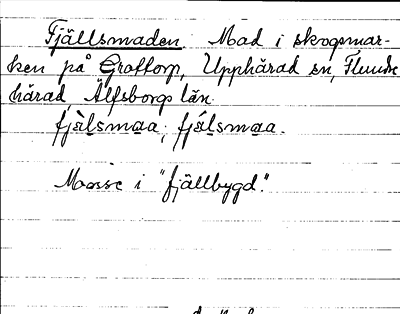 Fjällsmaden. Mad i skogsmar-
ken på Groftorp, Upphärad sn, Flundre
härad, Älfsborgs län.
fjälsmaa, fjälsmaa.
Mosse i "fjällbygd".